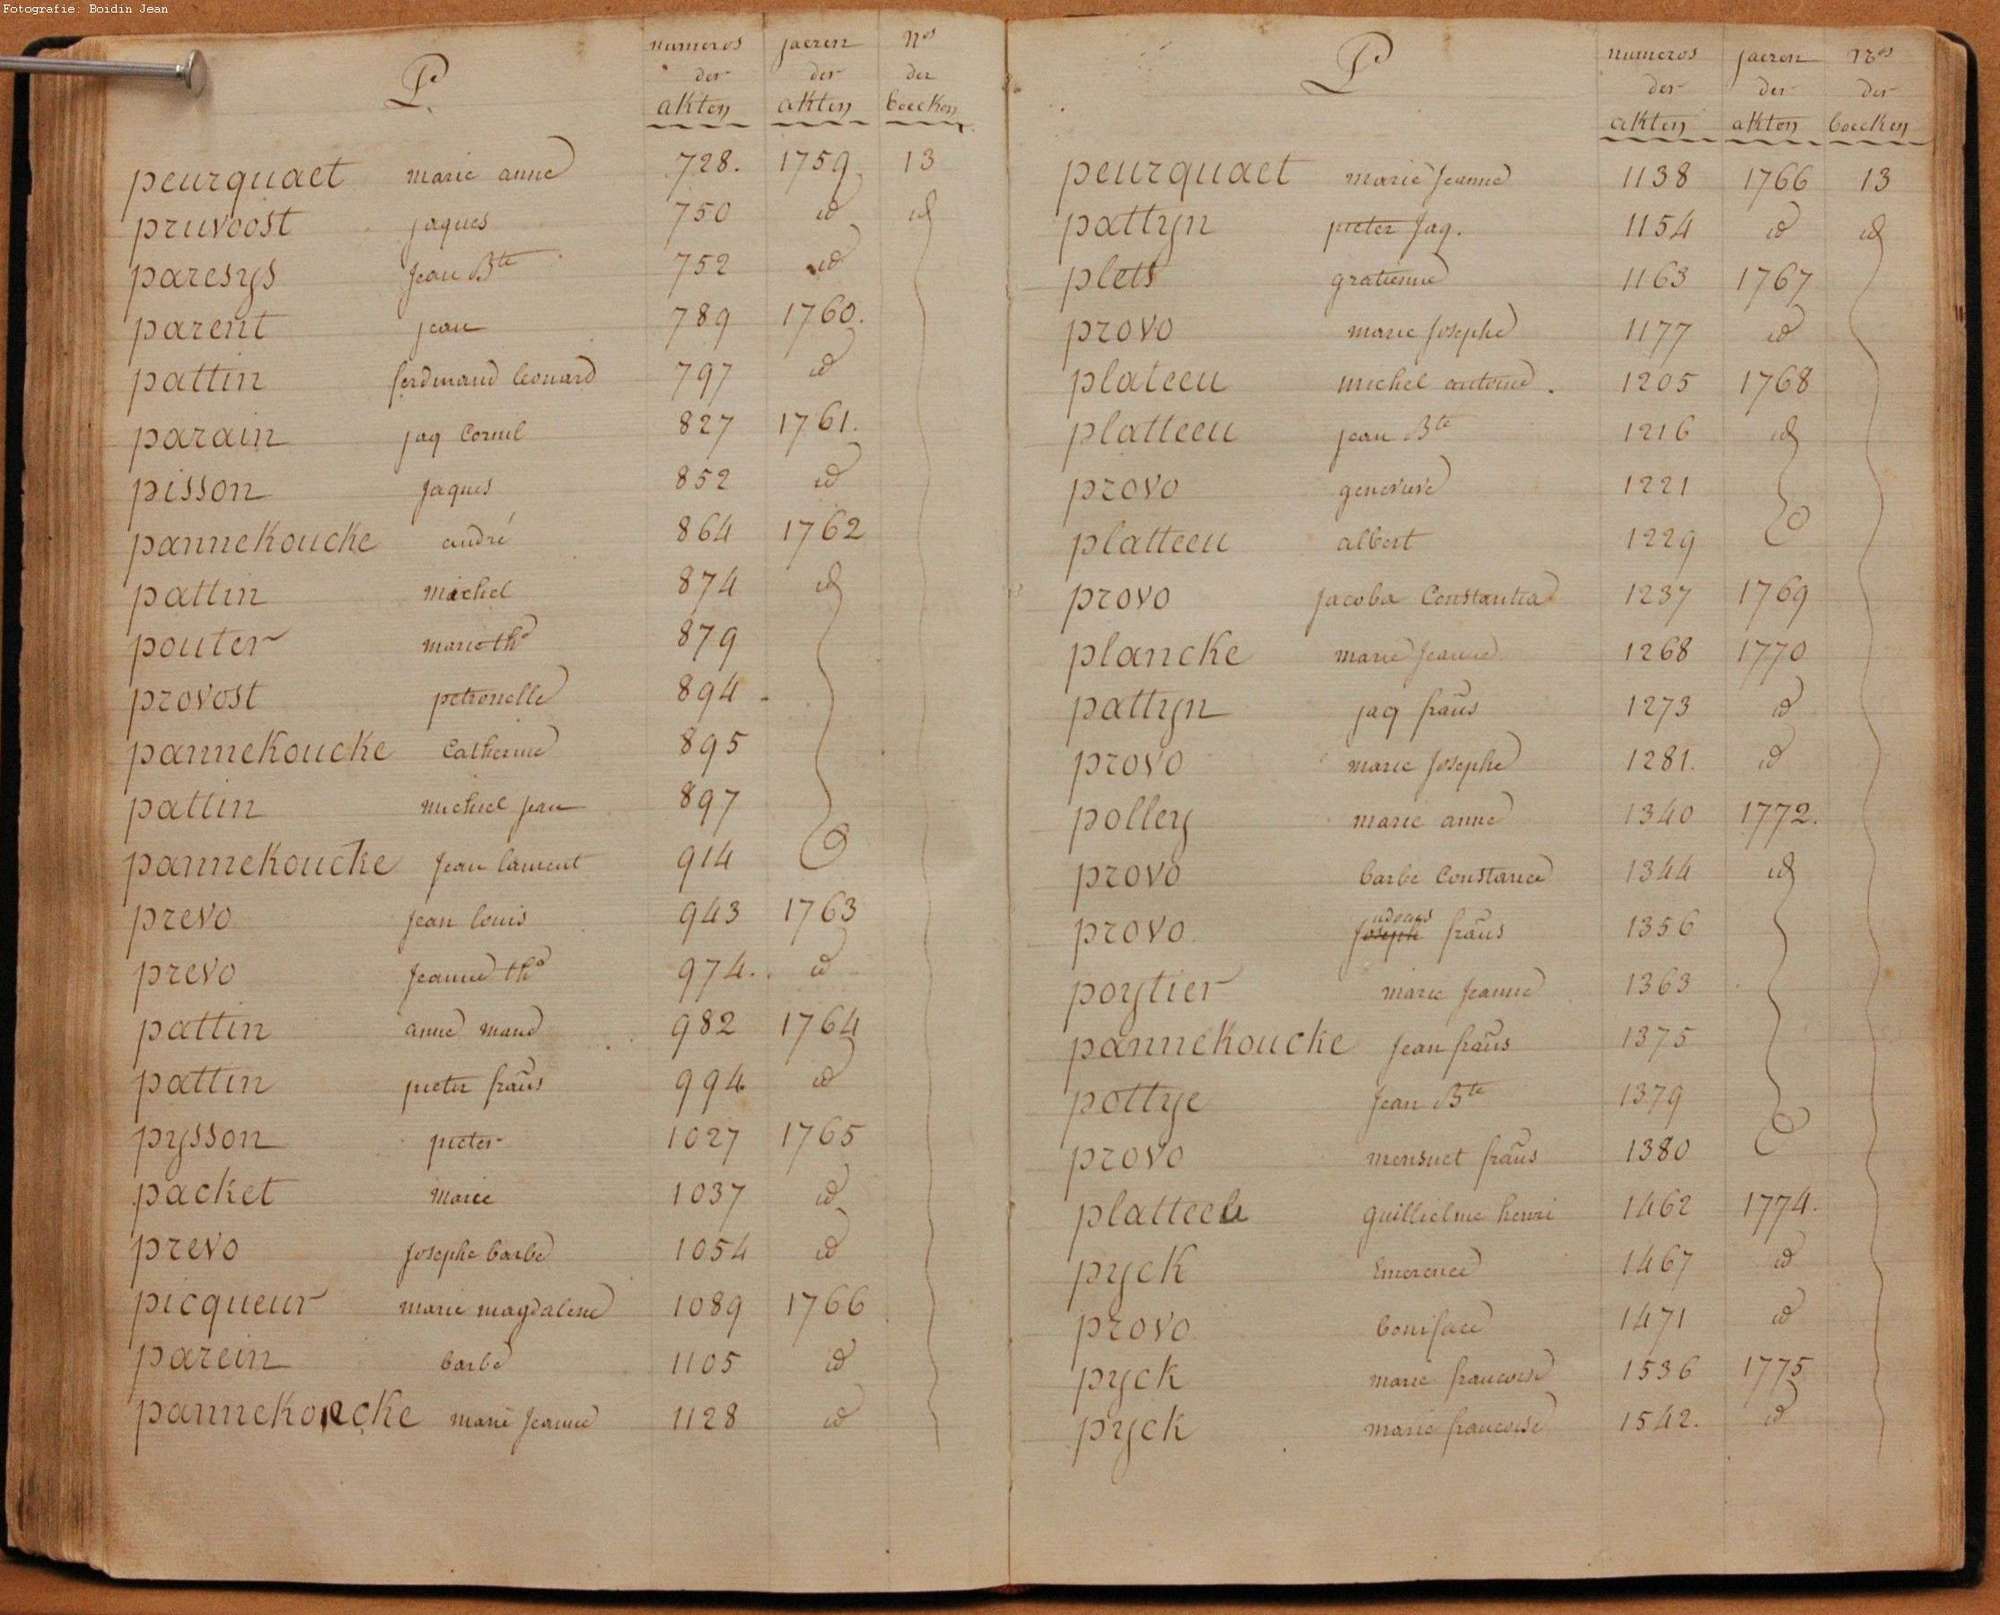 Fotografie: Boidin Jean
P.
numeros jaeren Nos
der der der
akten akten boecken
peurquaet marie anne 728. 1759. 13
pruvoost jaques 750 id id
paresys Jean Bte 752 id
parent jean 789 1760.
pattin ferdinand leonard 797 id
parain jaq Cornil 827 1761.
pisson jaques 852 id
pannekoucke andré 864 1762
pattin michel 874 id
pouter marie the 879
provost petronelle 894
pannekoucke Catherine 895
pattin michiel jean 897
pannekoucke Jean laurent 914
prevo jean louis 943 1763
prevo Jeanne the 974. id
pattin anne marie 982 1764
pattin pieter frans 994 id
pysson pieter 1027 1765
packet marie 1037 id
prevo josephe barbe 1054 id
picqueur marie magdalene 1089 1766
parein barbe 1105 id
pannekoucke marie Jeanne 1128 id
P
numeros jaeren Nos
der der der
akten akten boecken
peurquaet marie Jeanne 1138 1766 13
pattyn pieter Jaq. 1154 id id
plets gratienne 1163 1767
provo marie Josephe 1177 id
plateeu michel antoine. 1205 1768
platteeu jean Bte 1216 id
provo genevieve 1221
platteeu albert 1229
provo jacoba Constantia 1237 1769
plancke marie Jeanne 1268 1770
pattyn jaq frans 1273 id
provo marie Josephe 1281. id
polley marie anne 1340 1772.
provo barbe Constance 1344 id
provo Joseph frans 1356
poytier marie Jeanne 1363
pannekoucke Jean frans 1375
pottye Jean Bte 1379
provo mensuet frans 1380
platteeu guillielme henri 1462 1774.
pyck Emerence 1467 id
provo boniface 1471 id
pyck marie francoise 1536 1775
pyck marie francoise 1542. id